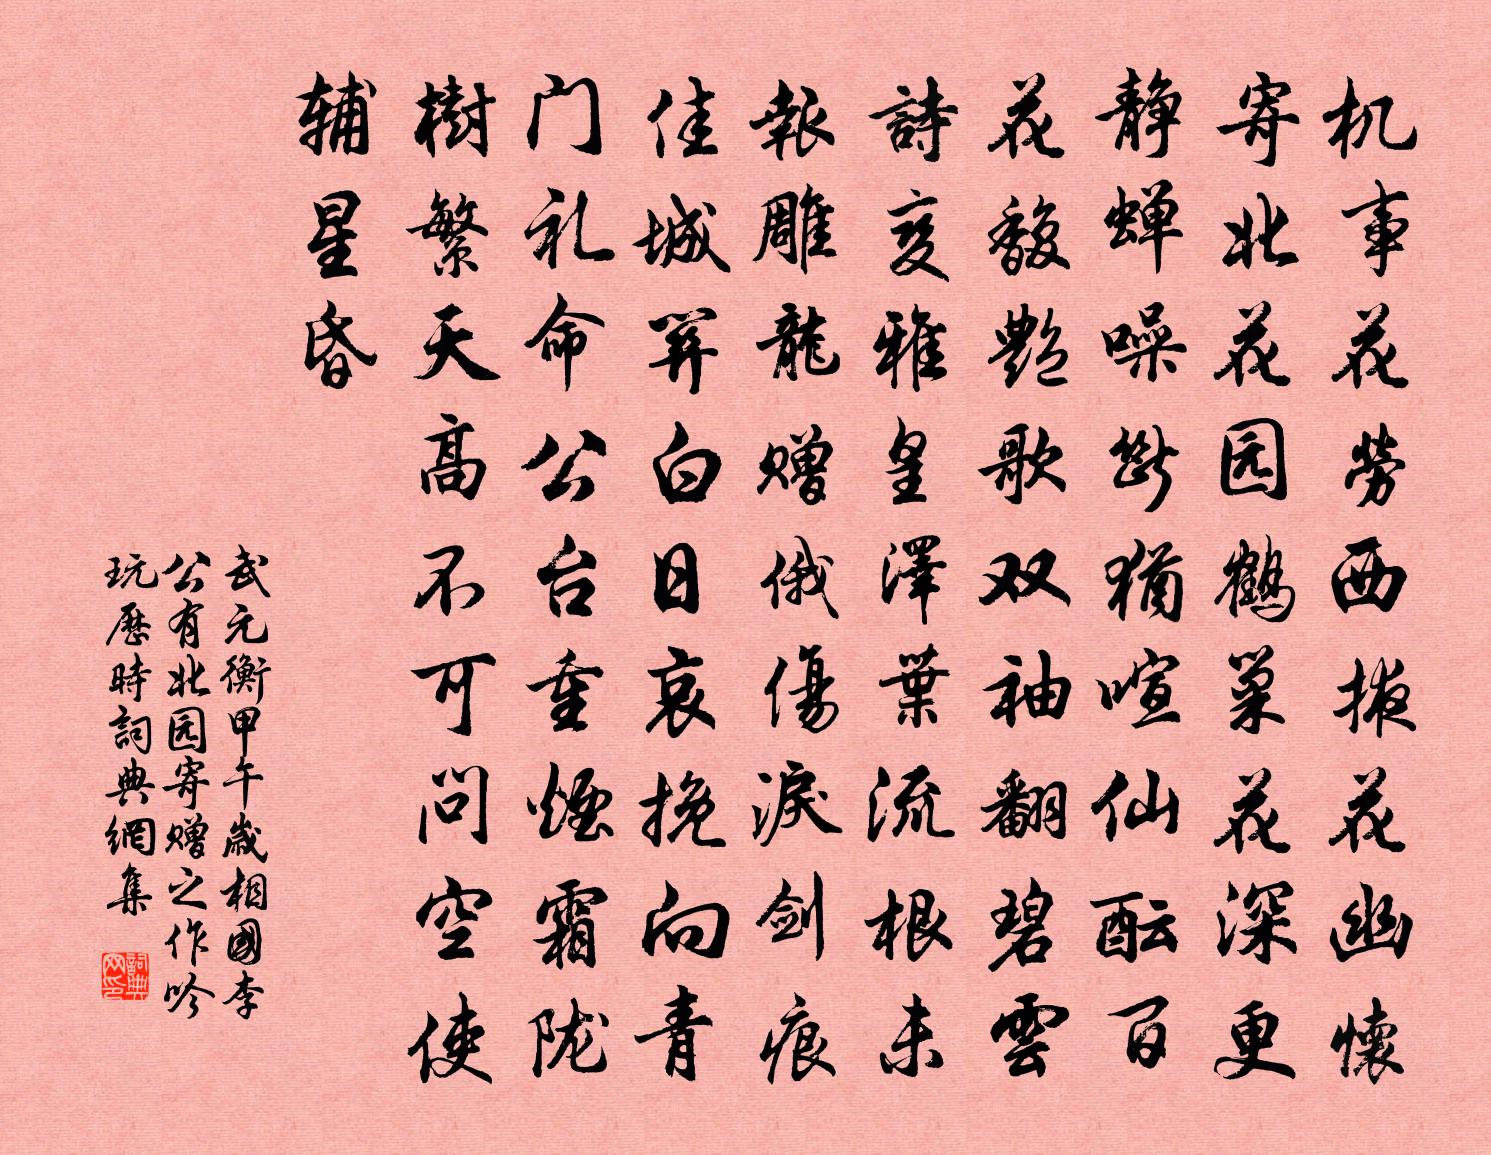 机事花勞西掖花幽懷
寄北花园鶴巢花深更
静蝉噪斷猶喧仙酝百
花馥艷歌双袖翻碧雲
詩变雅皇澤葉流根未
報雕龍赠俄傷淚剑痕
佳城开白日哀挽向青
门礼命公台重煙霜陇
樹繁天高不可问空使
辅星昏
武元衡甲午歲相國李
公有北园寄赠之作吟
玩歷時詞典網集
詞典网印